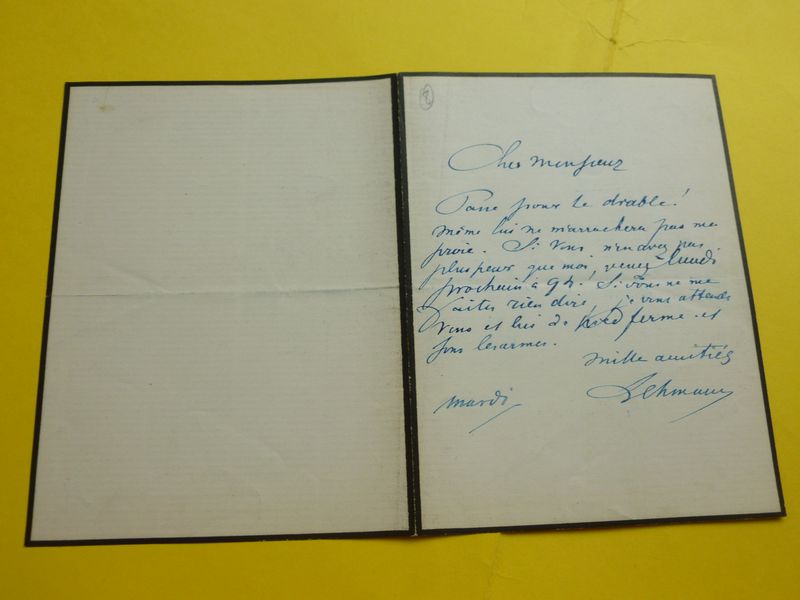 Cher monsieur
Passe pour le diable!
même lui ne m'arrachera pas ma
proie. Si vous n'en avez pas
plus peur que moi, venez lundi
prochain à 9h. Si vous ne me
faites rien dire, je vous attends
vous et lui de pied ferme et
sous les armes.
mille amitiés
mardi Lehmann